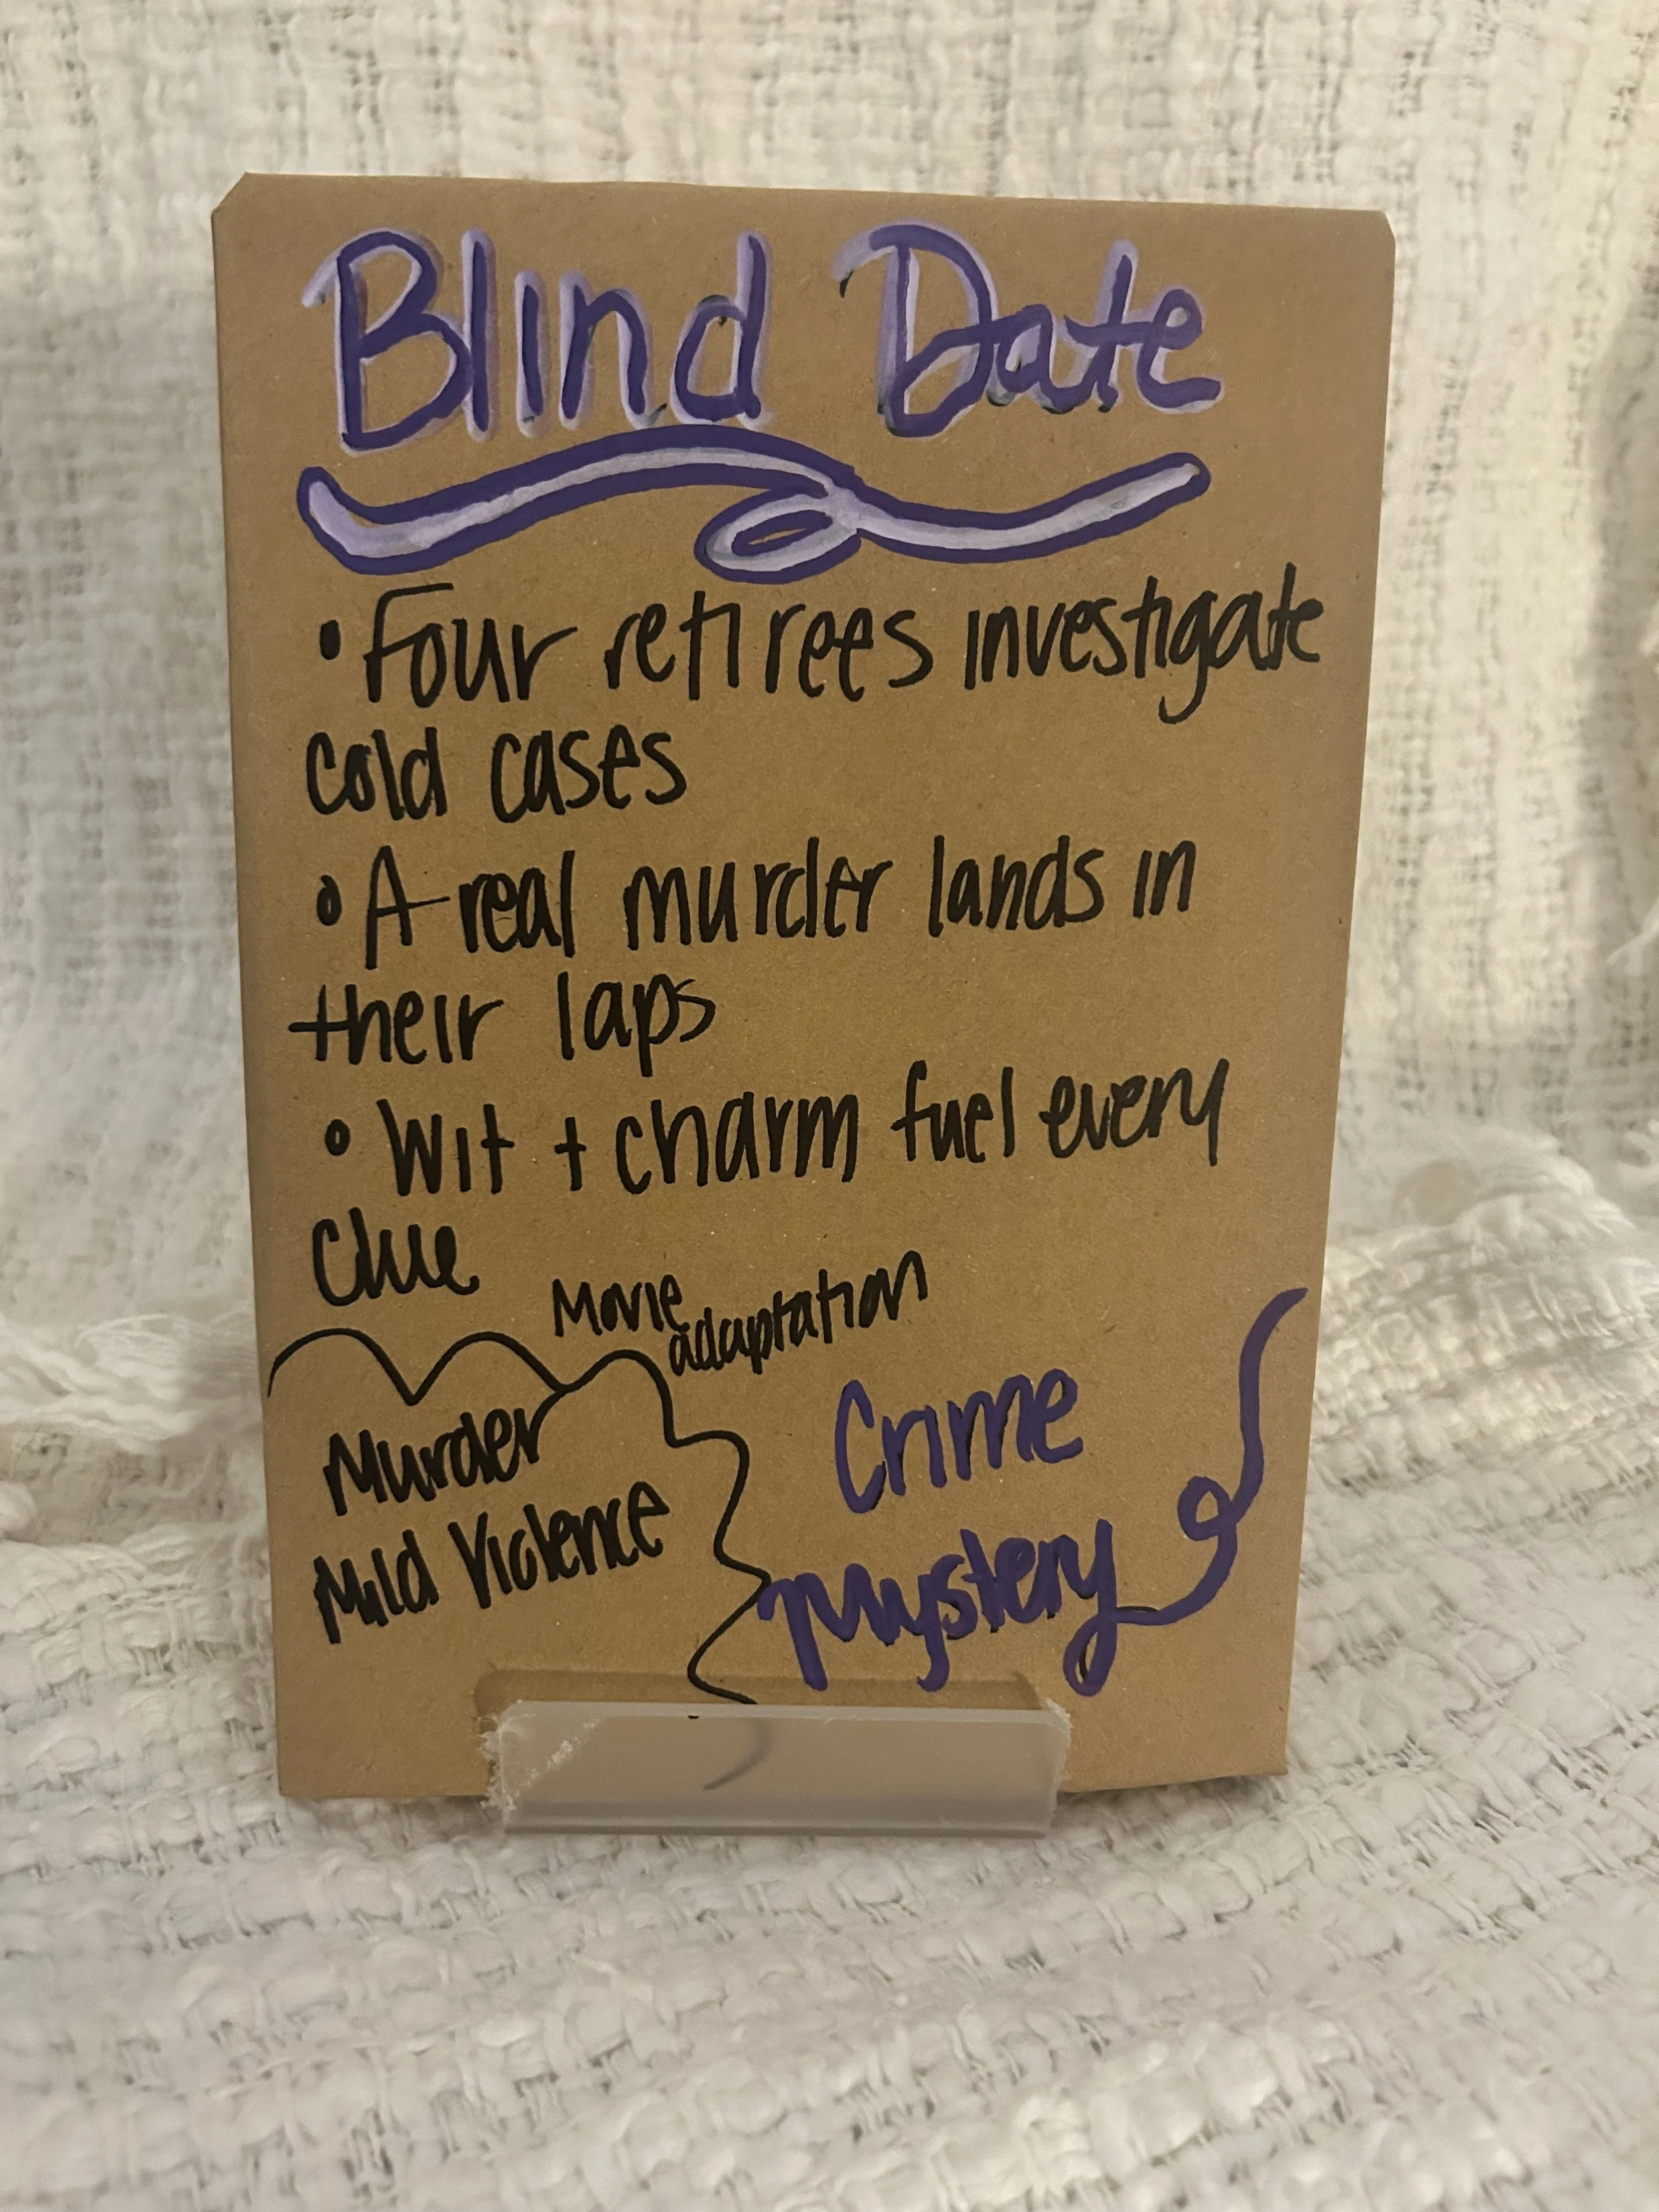 Blind Date
• Four retirees investigate
cold cases
• A real murder lands in
their laps
• Wit + charm fuel every
Clue
Movie
adaptation
Murder
Mild Violence
Crime
Mystery